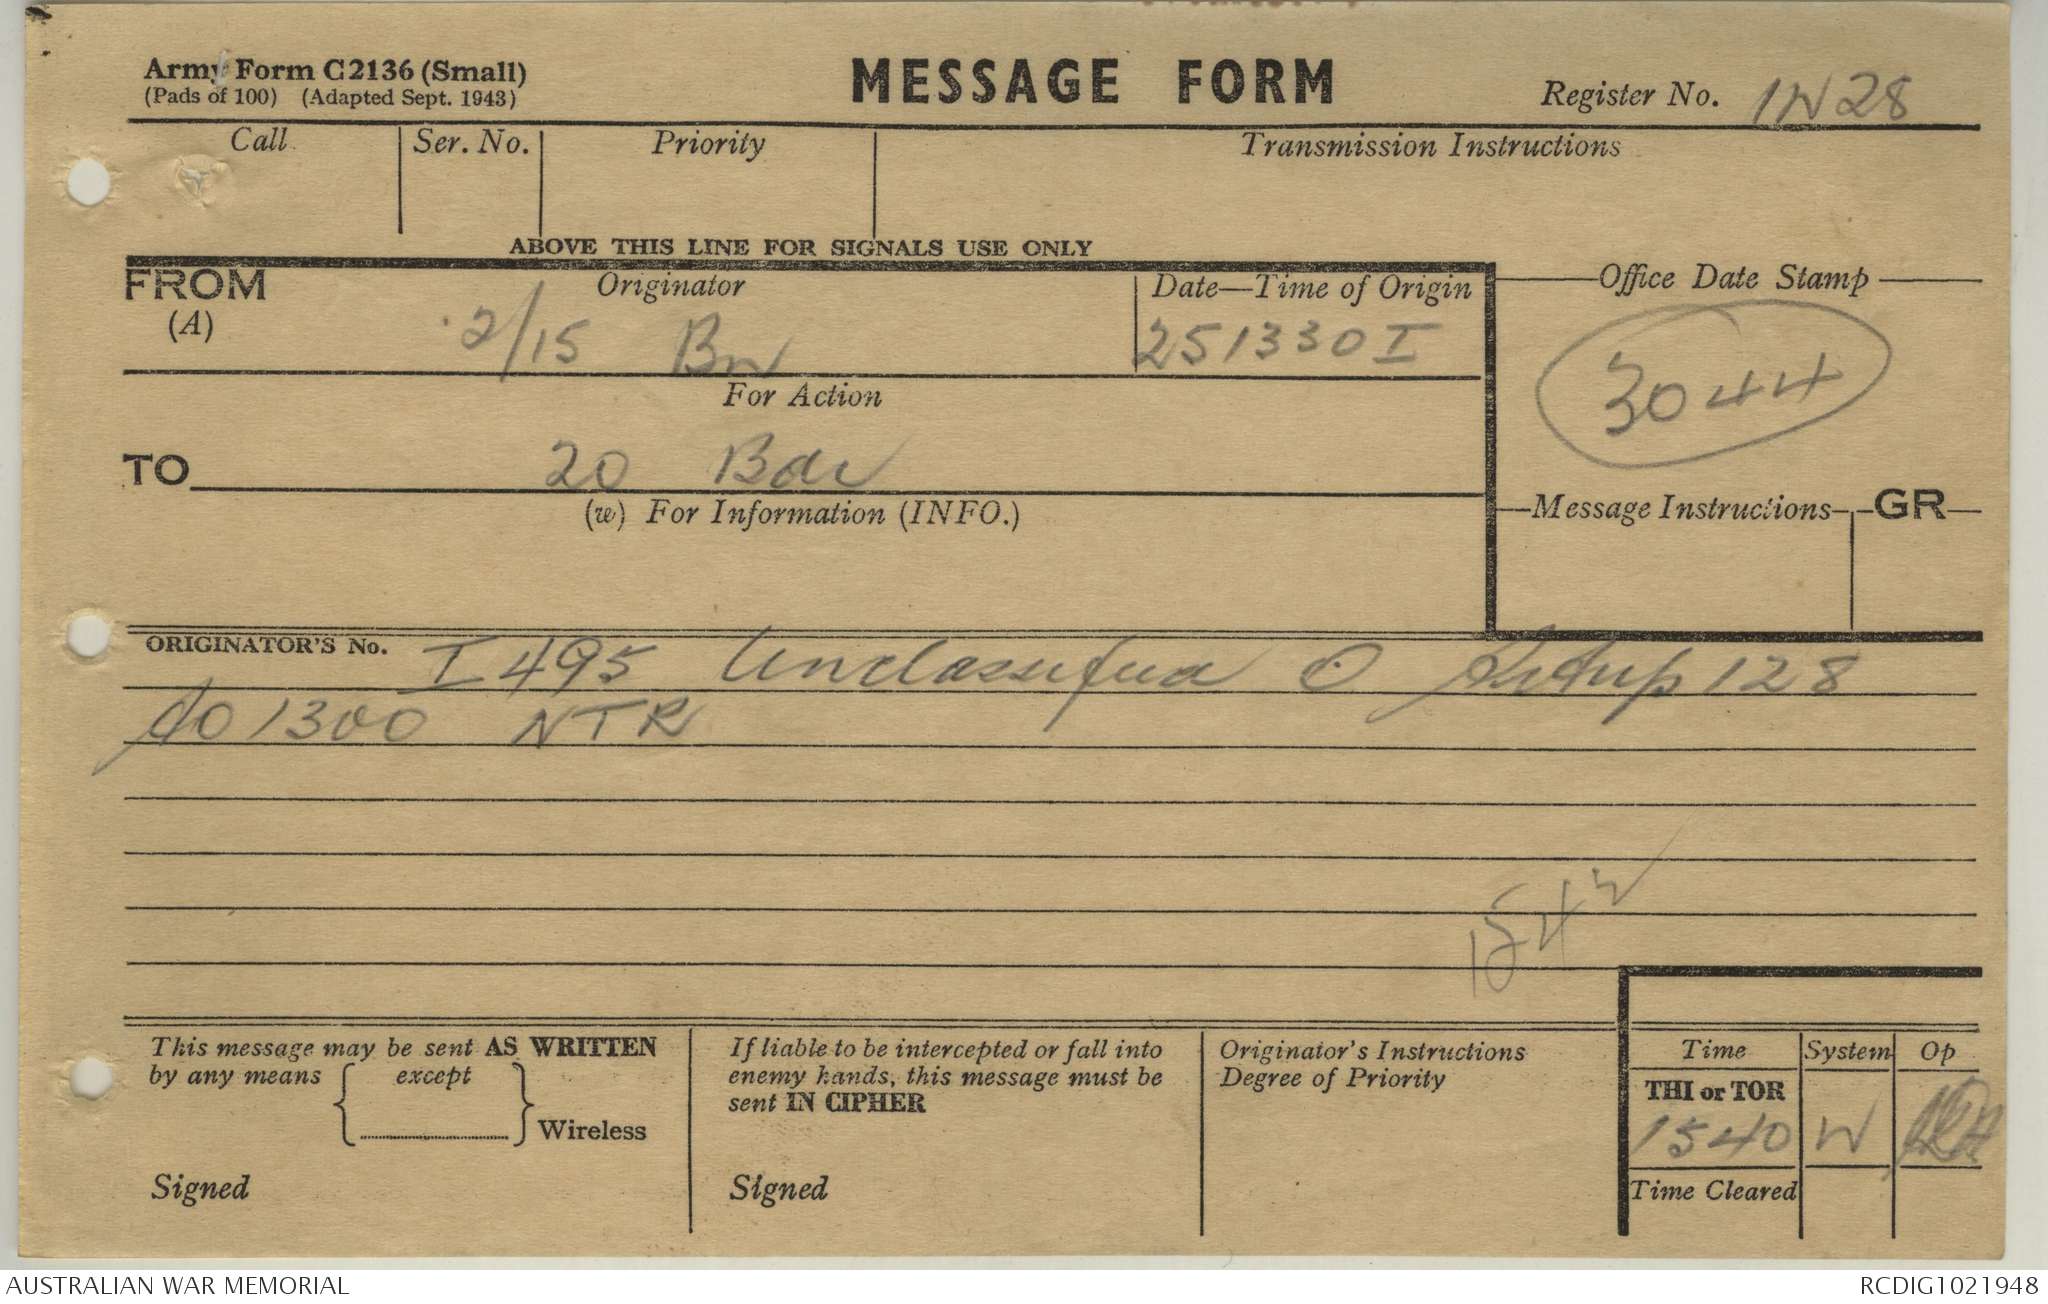 Army Form C2136 (Small)
(Pads of 100) (Adapted Sept. 1943)
MESSAGE FORM
Register No. IN28
Call
Ser. No.
Priority
Transmission Instructions
ABOVE THIS LINE FOR SIGNALS USE ONLY
FROM
(A)
Originator
2/15 Bn
Date—Time of Origin
251330 I
Office Date Stamp
3044
For Action
TO
20 Bde
(w) For Information (INFO.)
Message Instructions
GR
ORIGINATOR'S No. I 495 Unclassified O Sitrep 128
to 1300 NTR
1542
This message may be sent AS WRITTEN
by any means except
Wireless
Signed
If liable to be intercepted or fall into
enemy hands, this message must be
sent IN CIPHER
Signed
Originator's Instructions
Degree of Priority
Time System Op
THI or TOR
1540 W
Time Cleared
AUSTRALIAN WAR MEMORIAL
RCDIG1021948